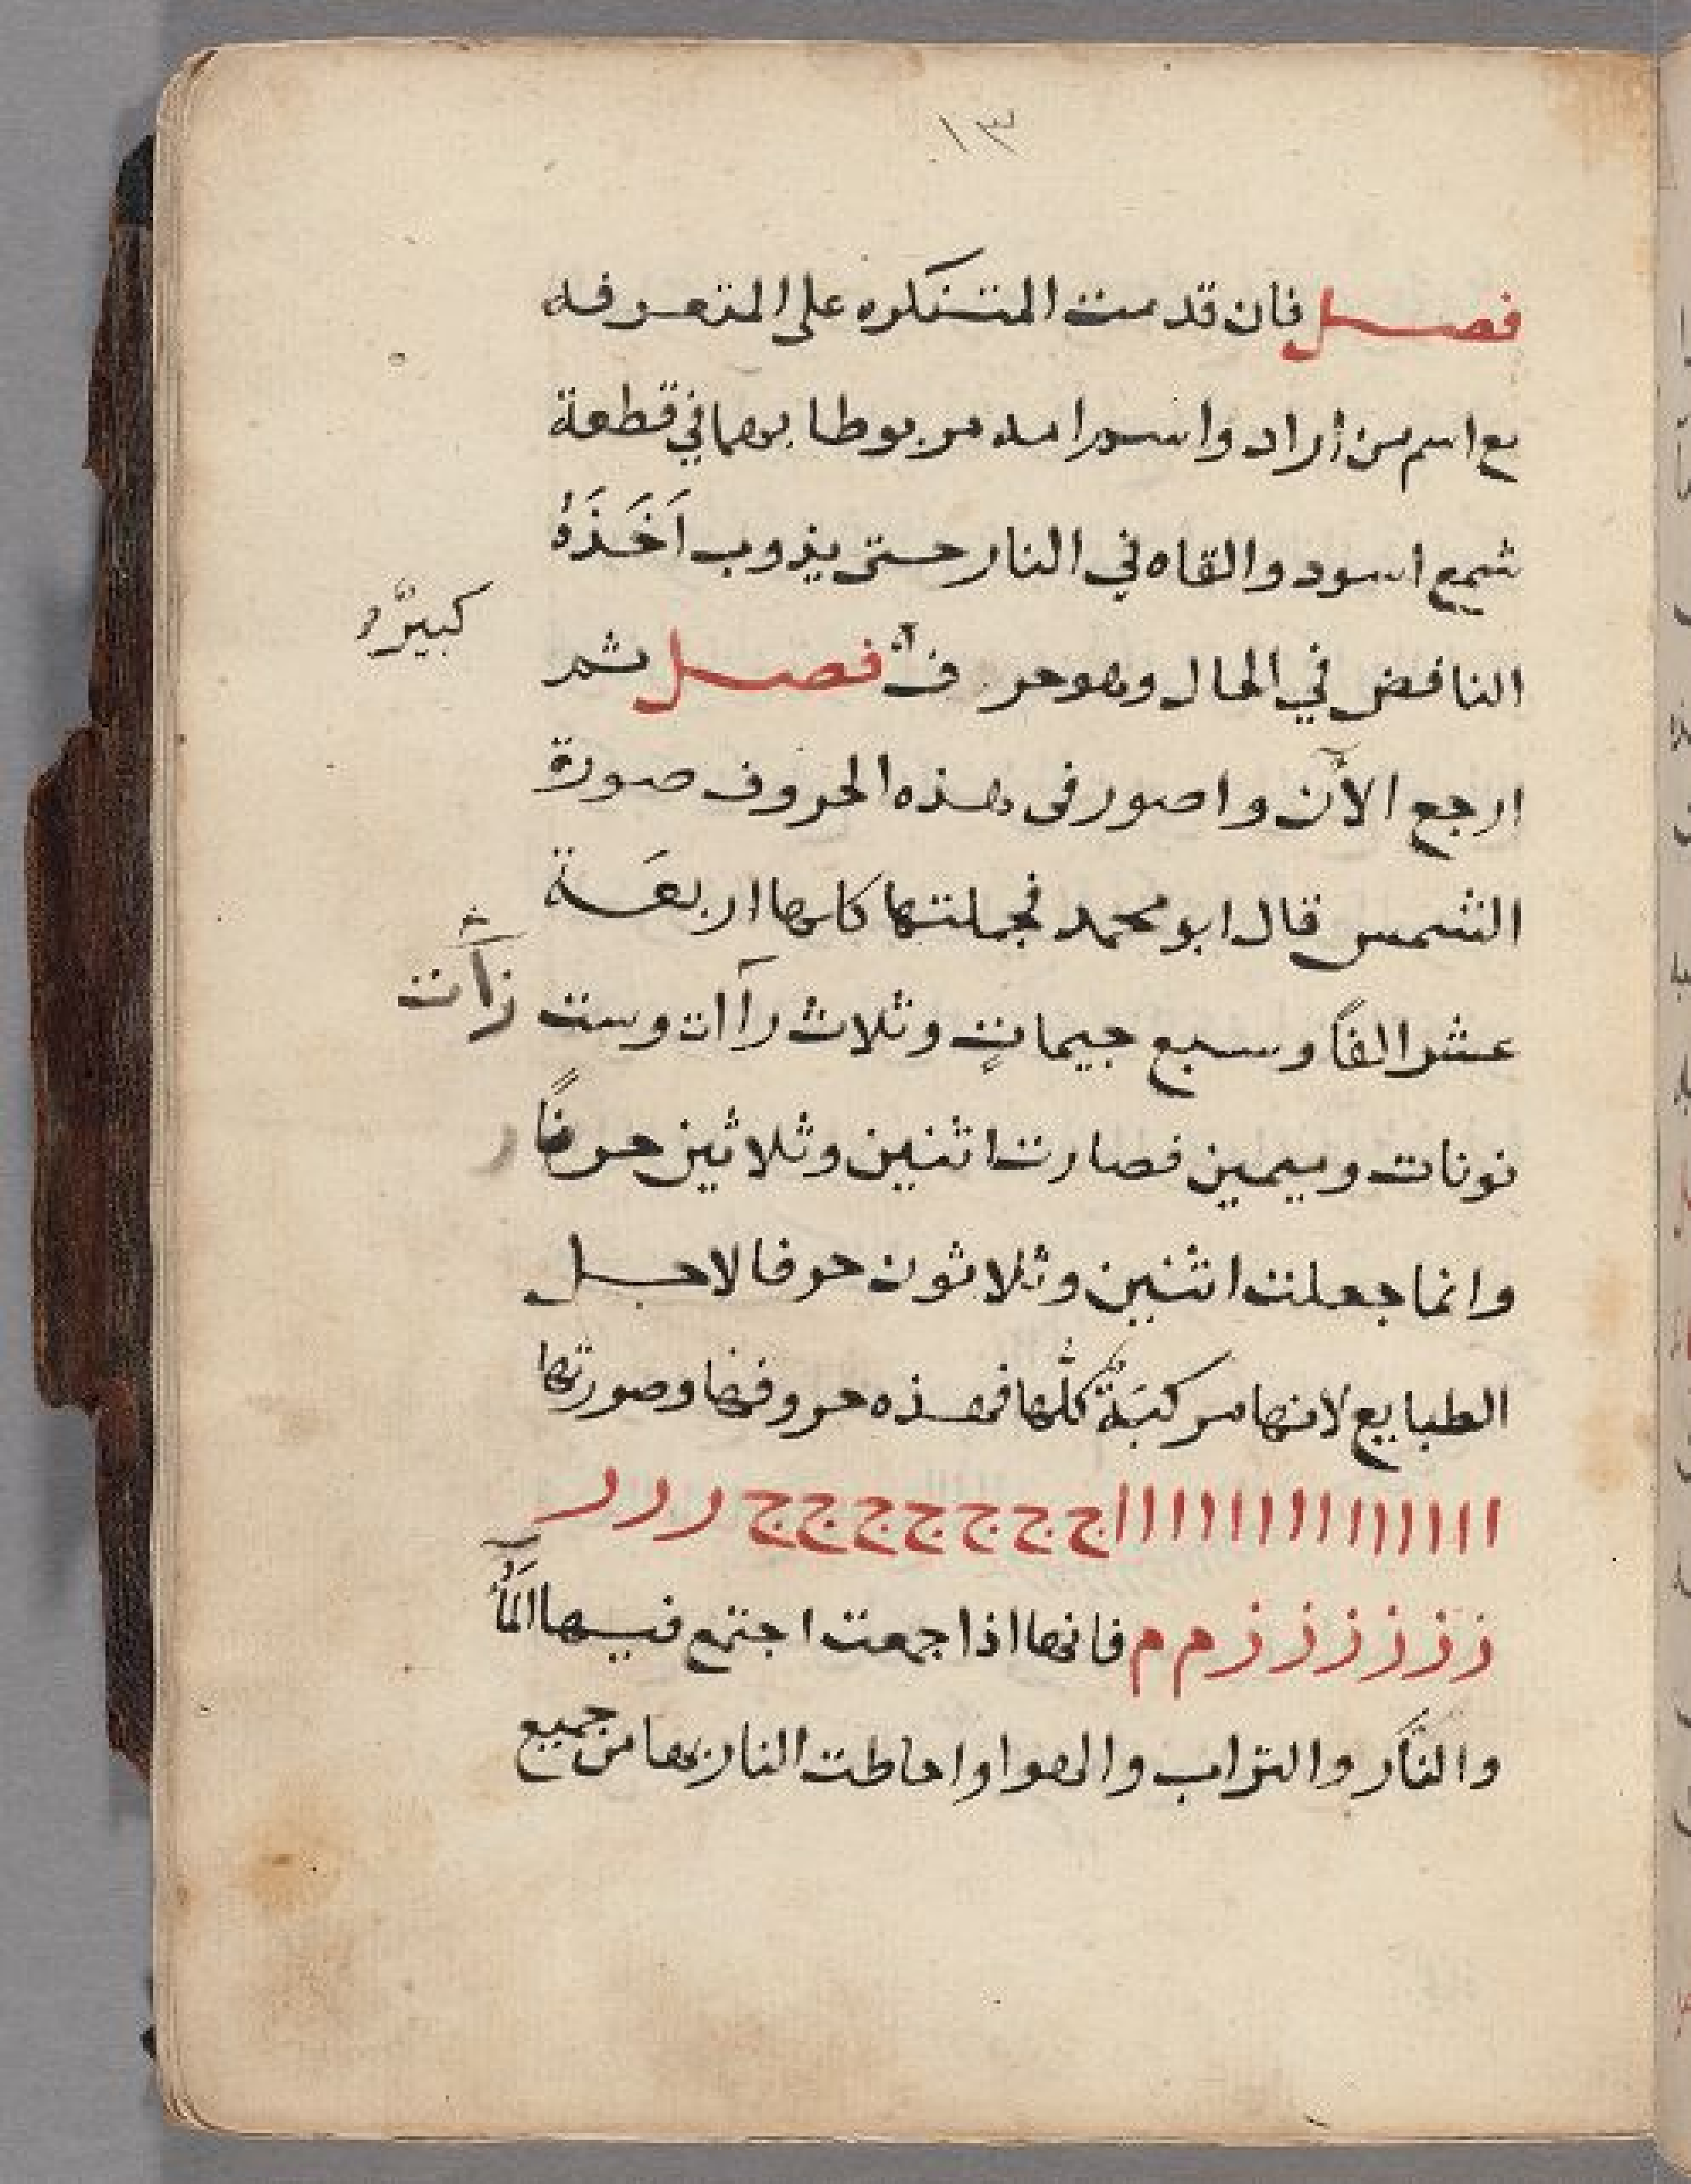 ١٣
فصل فان قدمت المتنكره على المتعرفه
مع اسم من اراد واسم امه مربوطا بهما في قطعة
شمع اسود والقاه في النار حتى يذوب اَخَذَهُ
النافض في الحال وهو حرف فصل ثم
ارجع الآن واصور في هذه الحروف صورة
الشمس قال ابو محمد فجملتها كلها اربعَة
عشر الفًا وسبع جيماتٍ وثلاث رآات وست
نونات وميمين فصارت اثنين وثلاثين حرفًا
وانما جعلت اثنين وثلاثون حرفا لاجل
الطبايع لانها مركبَةٌ كلُّها فهذه حروفها وصورتها
ا ا ا ا ا ا ا ا ا ا ا ا ا ا ج ج ج ج ج ج ج ر ر ر
ز ز ز ز ز ز م م فانها اذا جمعت اجتمع فيها المَآُ
والنَّار والتراب والهوا واحاطت النار بها من جميع
زآت